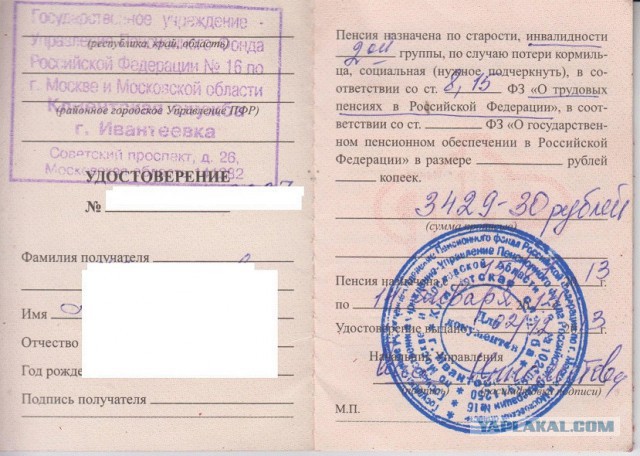 Государственное учреждение
Управление Пенсионного Фонда
(республика, край, область)
Российской Федерации № 16 по
г. Москве и Московской области
Клиентская служба
(районное городское Управление ПФР)
г. Ивантеевка
Советский проспект, д. 26,
УДОСТОВЕРЕНИЕ
№
Фамилия получателя
Имя
Отчество
Год рождения
Подпись получателя
Пенсия назначена по старости, инвалидности
2 ой группы, по случаю потери кормиль-
ца, социальная (нужное подчеркнуть), в со-
ответствии со ст. 8, 15 ФЗ «О трудовых
пенсиях в Российской Федерации», в соот-
ветствии со ст. ФЗ «О государствен-
ном пенсионном обеспечении в Российской
Федерации» в размере рублей
копеек.
3429-30 рублей
(сумма прописью)
Пенсия назначена с 13 г.
по января
Удостоверение выдано
Начальник Управления
(подпись) (расшифровка подписи)
М.П.
Для документов
YAPLAKAL.COM